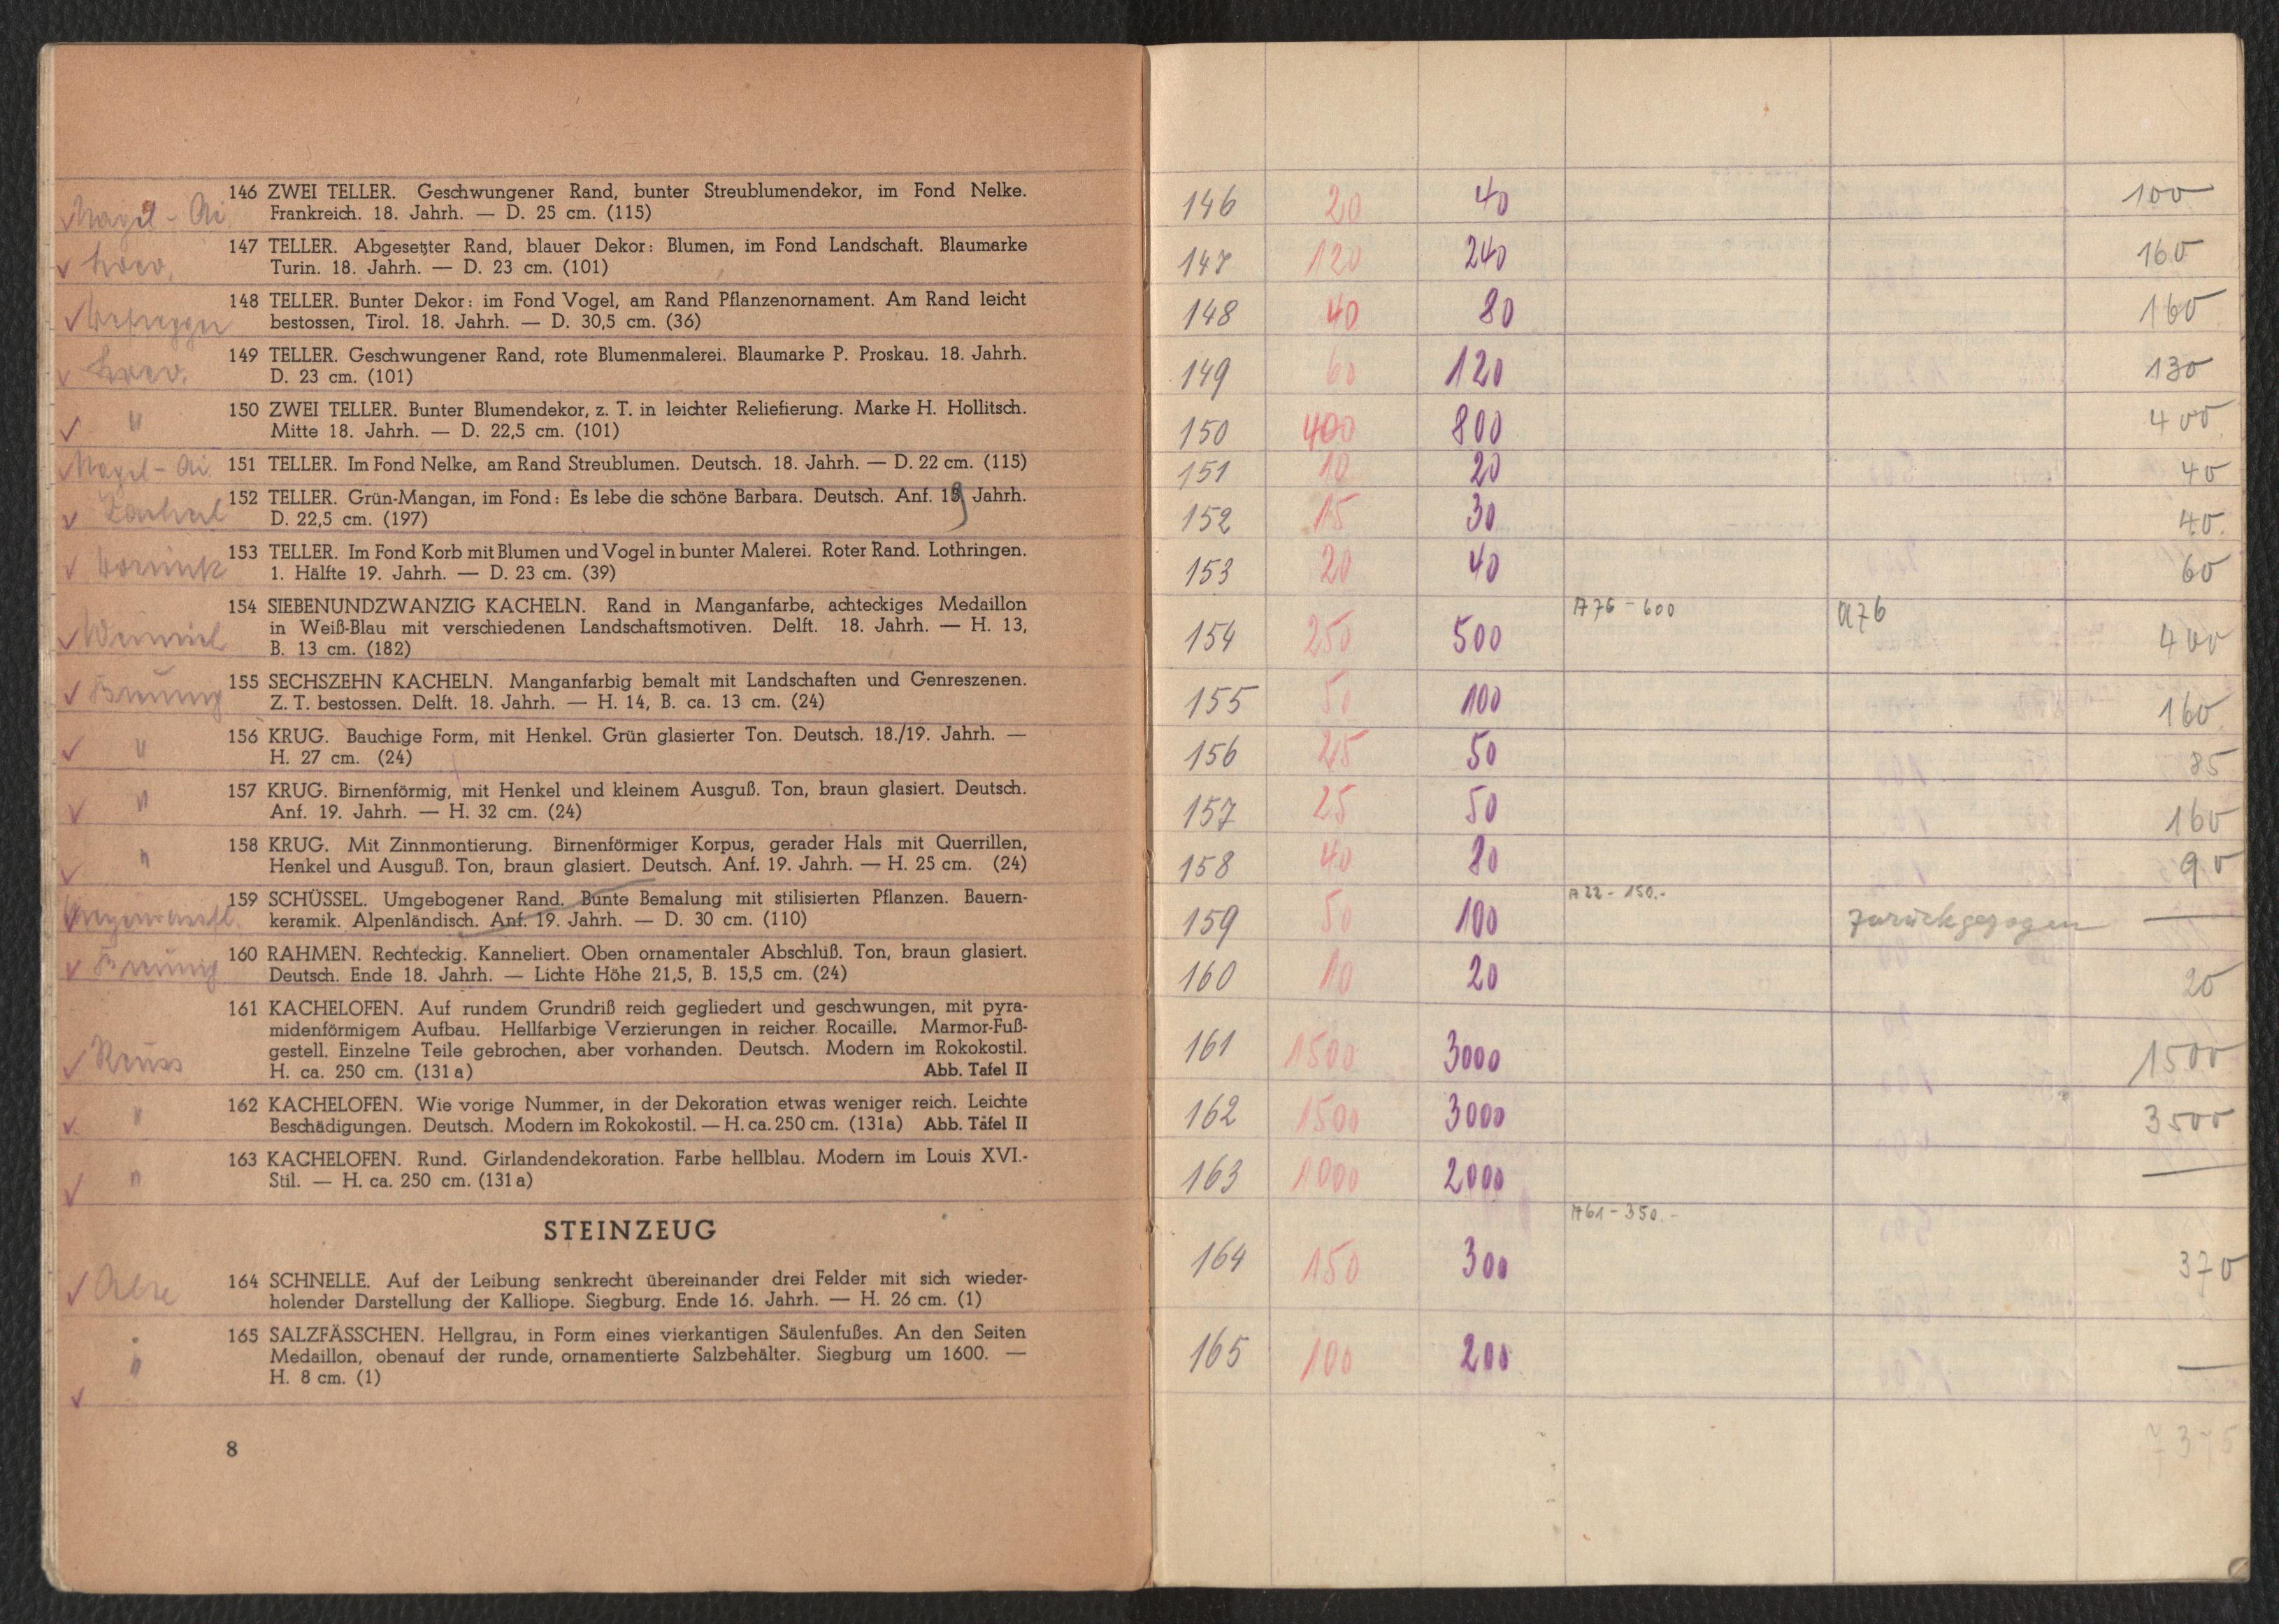 Nagel - Ai.
146 ZWEI TELLER. Geschwungener Rand, bunter Streublumendekor, im Fond Nelke.
Frankreich. 18. Jahrh. — D. 25 cm. (115)
147 TELLER. Abgesetzter Rand, blauer Dekor: Blumen, im Fond Landschaft. Blaumarke
Turin. 18. Jahrh. — D. 23 cm. (101)
148 TELLER. Bunter Dekor: im Fond Vogel, am Rand Pflanzenornament. Am Rand leicht
bestossen, Tirol. 18. Jahrh. — D. 30,5 cm. (36)
149 TELLER. Geschwungener Rand, rote Blumenmalerei. Blaumarke P. Proskau. 18. Jahrh.
D. 23 cm. (101)
" 150 ZWEI TELLER. Bunter Blumendekor, z. T. in leichter Reliefierung. Marke H. Hollitsch.
Mitte 18. Jahrh. — D. 22,5 cm. (101)
Nagel - Ai. 151 TELLER. Im Fond Nelke, am Rand Streublumen. Deutsch. 18. Jahrh. — D. 22 cm. (115)
152 TELLER. Grün-Mangan, im Fond: Es lebe die schöne Barbara. Deutsch. Anf. 19 Jahrh.
D. 22,5 cm. (197)
153 TELLER. Im Fond Korb mit Blumen und Vogel in bunter Malerei. Roter Rand. Lothringen.
1. Hälfte 19. Jahrh. — D. 23 cm. (39)
154 SIEBENUNDZWANZIG KACHELN. Rand in Manganfarbe, achteckiges Medaillon
in Weiß-Blau mit verschiedenen Landschaftsmotiven. Delft. 18. Jahrh. — H. 13,
B. 13 cm. (182)
155 SECHSZEHN KACHELN. Manganfarbig bemalt mit Landschaften und Genreszenen.
Z. T. bestossen. Delft. 18. Jahrh. — H. 14, B. ca. 13 cm. (24)
" 156 KRUG. Bauchige Form, mit Henkel. Grün glasierter Ton. Deutsch. 18./19. Jahrh. —
H. 27 cm. (24)
" 157 KRUG. Birnenförmig, mit Henkel und kleinem Ausguß. Ton, braun glasiert. Deutsch.
Anf. 19. Jahrh. — H. 32 cm. (24)
" 158 KRUG. Mit Zinnmontierung. Birnenförmiger Korpus, gerader Hals mit Querrillen,
Henkel und Ausguß. Ton, braun glasiert. Deutsch. Anf. 19. Jahrh. — H. 25 cm. (24)
159 SCHÜSSEL. Umgebogener Rand. Bunte Bemalung mit stilisierten Pflanzen. Bauern-
keramik. Alpenländisch. Anf. 19. Jahrh. — D. 30 cm. (110)
160 RAHMEN. Rechteckig. Kanneliert. Oben ornamentaler Abschluß. Ton, braun glasiert.
Deutsch. Ende 18. Jahrh. — Lichte Höhe 21,5, B. 15,5 cm. (24)
161 KACHELOFEN. Auf rundem Grundriß reich gegliedert und geschwungen, mit pyra-
midenförmigem Aufbau. Hellfarbige Verzierungen in reicher Rocaille. Marmor-Fuß-
gestell. Einzelne Teile gebrochen, aber vorhanden. Deutsch. Modern im Rokokostil.
Reuss H. ca. 250 cm. (131 a) Abb. Tafel II
" 162 KACHELOFEN. Wie vorige Nummer, in der Dekoration etwas weniger reich. Leichte
Beschädigungen. Deutsch. Modern im Rokokostil. — H. ca. 250 cm. (131a) Abb. Tafel II
" 163 KACHELOFEN. Rund. Girlandendekoration. Farbe hellblau. Modern im Louis XVI.-
Stil. — H. ca. 250 cm. (131 a)
STEINZEUG
164 SCHNELLE. Auf der Leibung senkrecht übereinander drei Felder mit sich wieder-
holender Darstellung der Kalliope. Siegburg. Ende 16. Jahrh. — H. 26 cm. (1)
" 165 SALZFÄSSCHEN. Hellgrau, in Form eines vierkantigen Säulenfußes. An den Seiten
Medaillon, obenauf der runde, ornamentierte Salzbehälter. Siegburg um 1600. —
H. 8 cm. (1)
8
146 20 40 100
147 120 240 160
148 40 80 160
149 60 120 130
150 400 800 400
151 10 20 40
152 15 30 40
153 20 40 60
A 76 - 600 A76
154 250 500 400
155 50 100 160
156 25 50 85
157 25 50 160
158 40 80 90
A 22 - 150.-
159 50 100 zurückgezogen —
160 10 20 20
161 1500 3000 1500
162 1500 3000 3500
163 1000 2000 —
A 61 - 350.-
164 150 300 370
165 100 200 —
7375